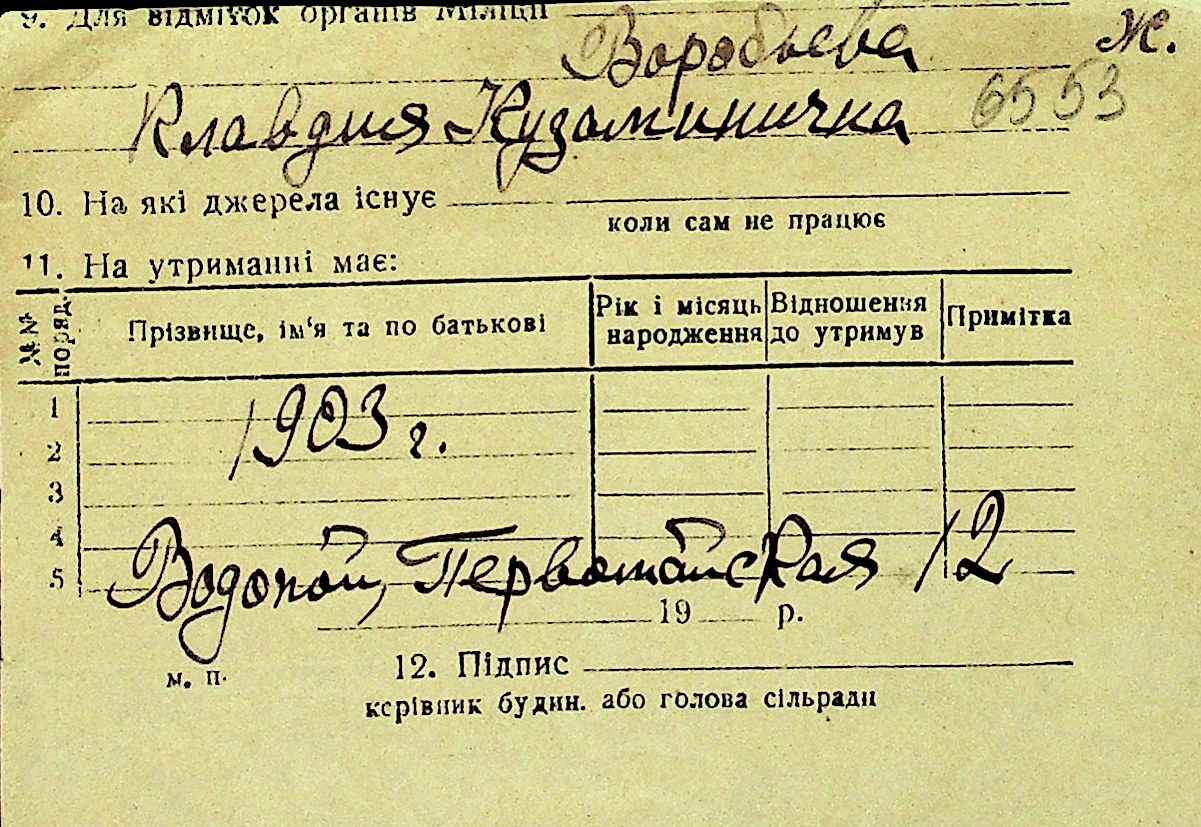 9. Для відміток органів міліції
Воробьева Ж.
Клавдия Кузьминична 6553
10. На які джерела існує
коли сам не працює
11. На утриманні має:
№№ поряд. Прізвище, ім'я та по батькові Рік і місяць народження Відношення до утримув Примітка
1
1903 г.
2
3
4
5
Водопой, Первомайская 12
19 р.
м. п. 12. Підпис
керівник будин. або голова сільради